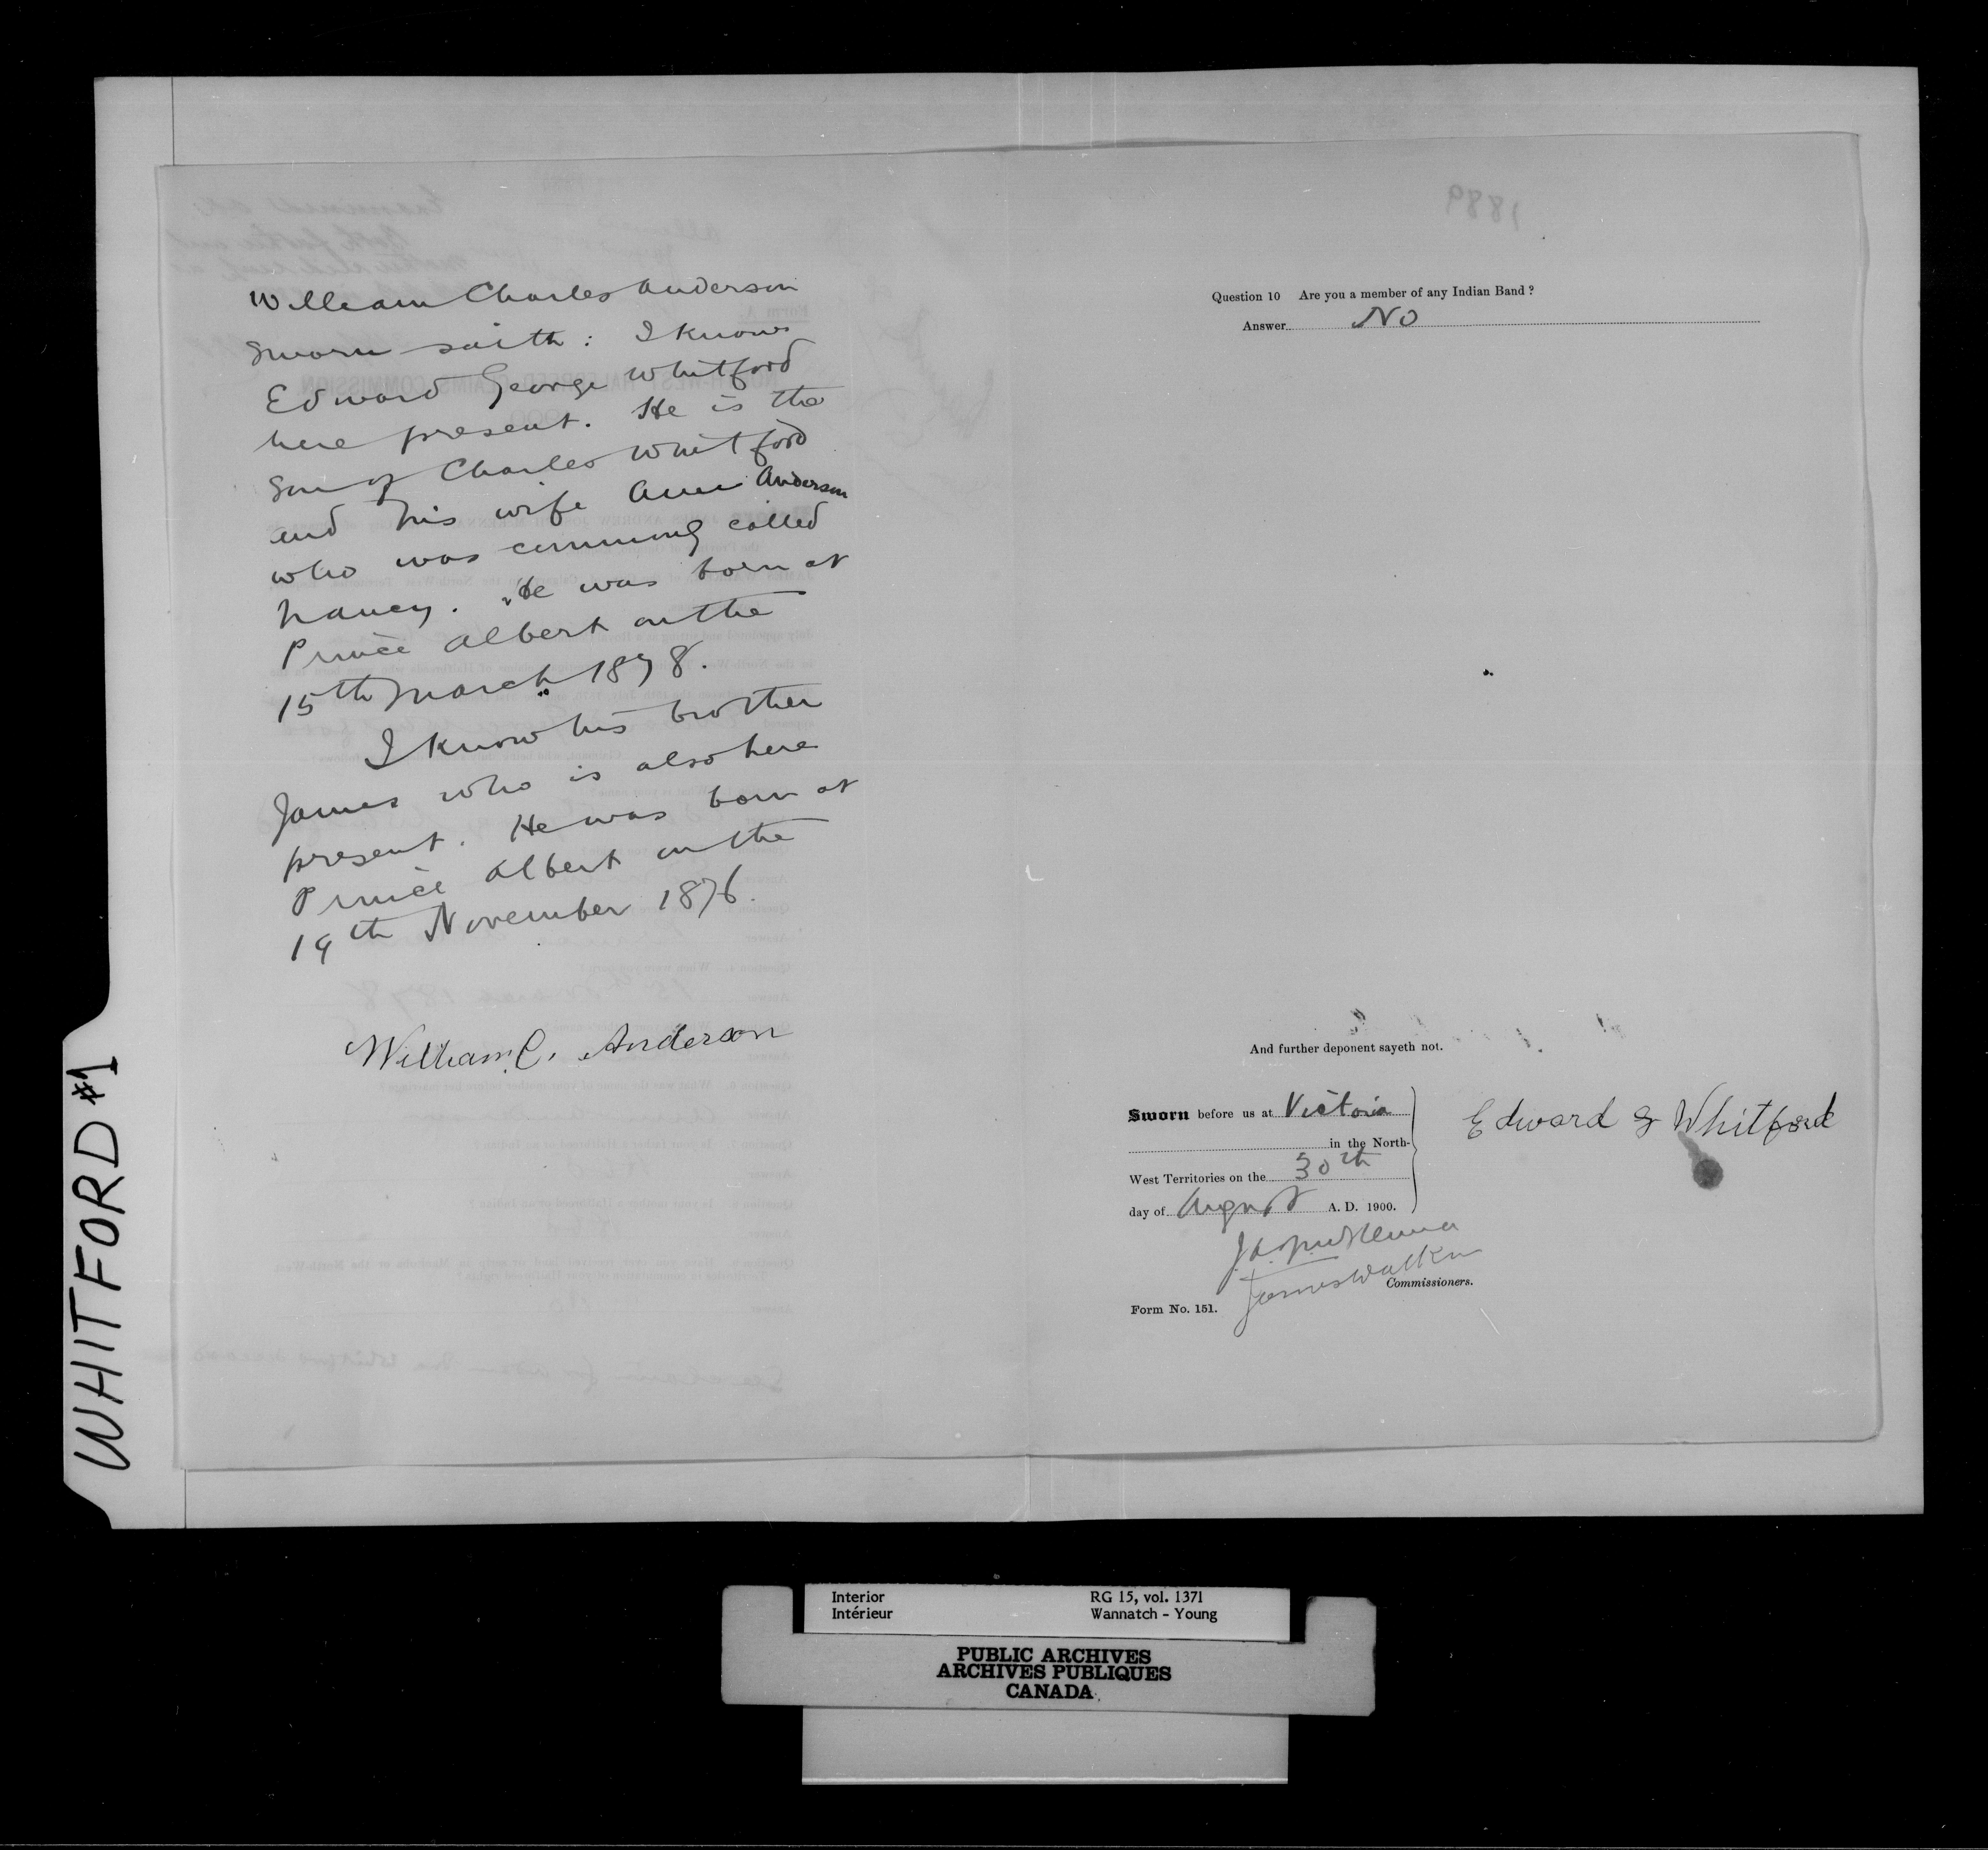 William Charles Anderson
sworn saith: I know
Edward George Whitford
here present. He is the
son of Charles Whitford
and his wife Ann Anderson
who was commonly called
Nancy. He was born at
Prince Albert on the
15th March 1878.
I know his brother
James who is also here
present. He was born at
Prince Albert on the
19th November 1876.
William C. Anderson
1889
Question 10 Are you a member of any Indian Band?
Answer No
And further deponent sayeth not.
Sworn before us at Victoria
in the North-
West Territories on the 30th
day of August A. D. 1900.
Edward G Whitford
J. A. McKenna
James Walker
Commissioners.
Form No. 151.
WHITFORD #1
Interior RG 15, vol. 1371
Intérieur Wannatch - Young
PUBLIC ARCHIVES
ARCHIVES PUBLIQUES
CANADA